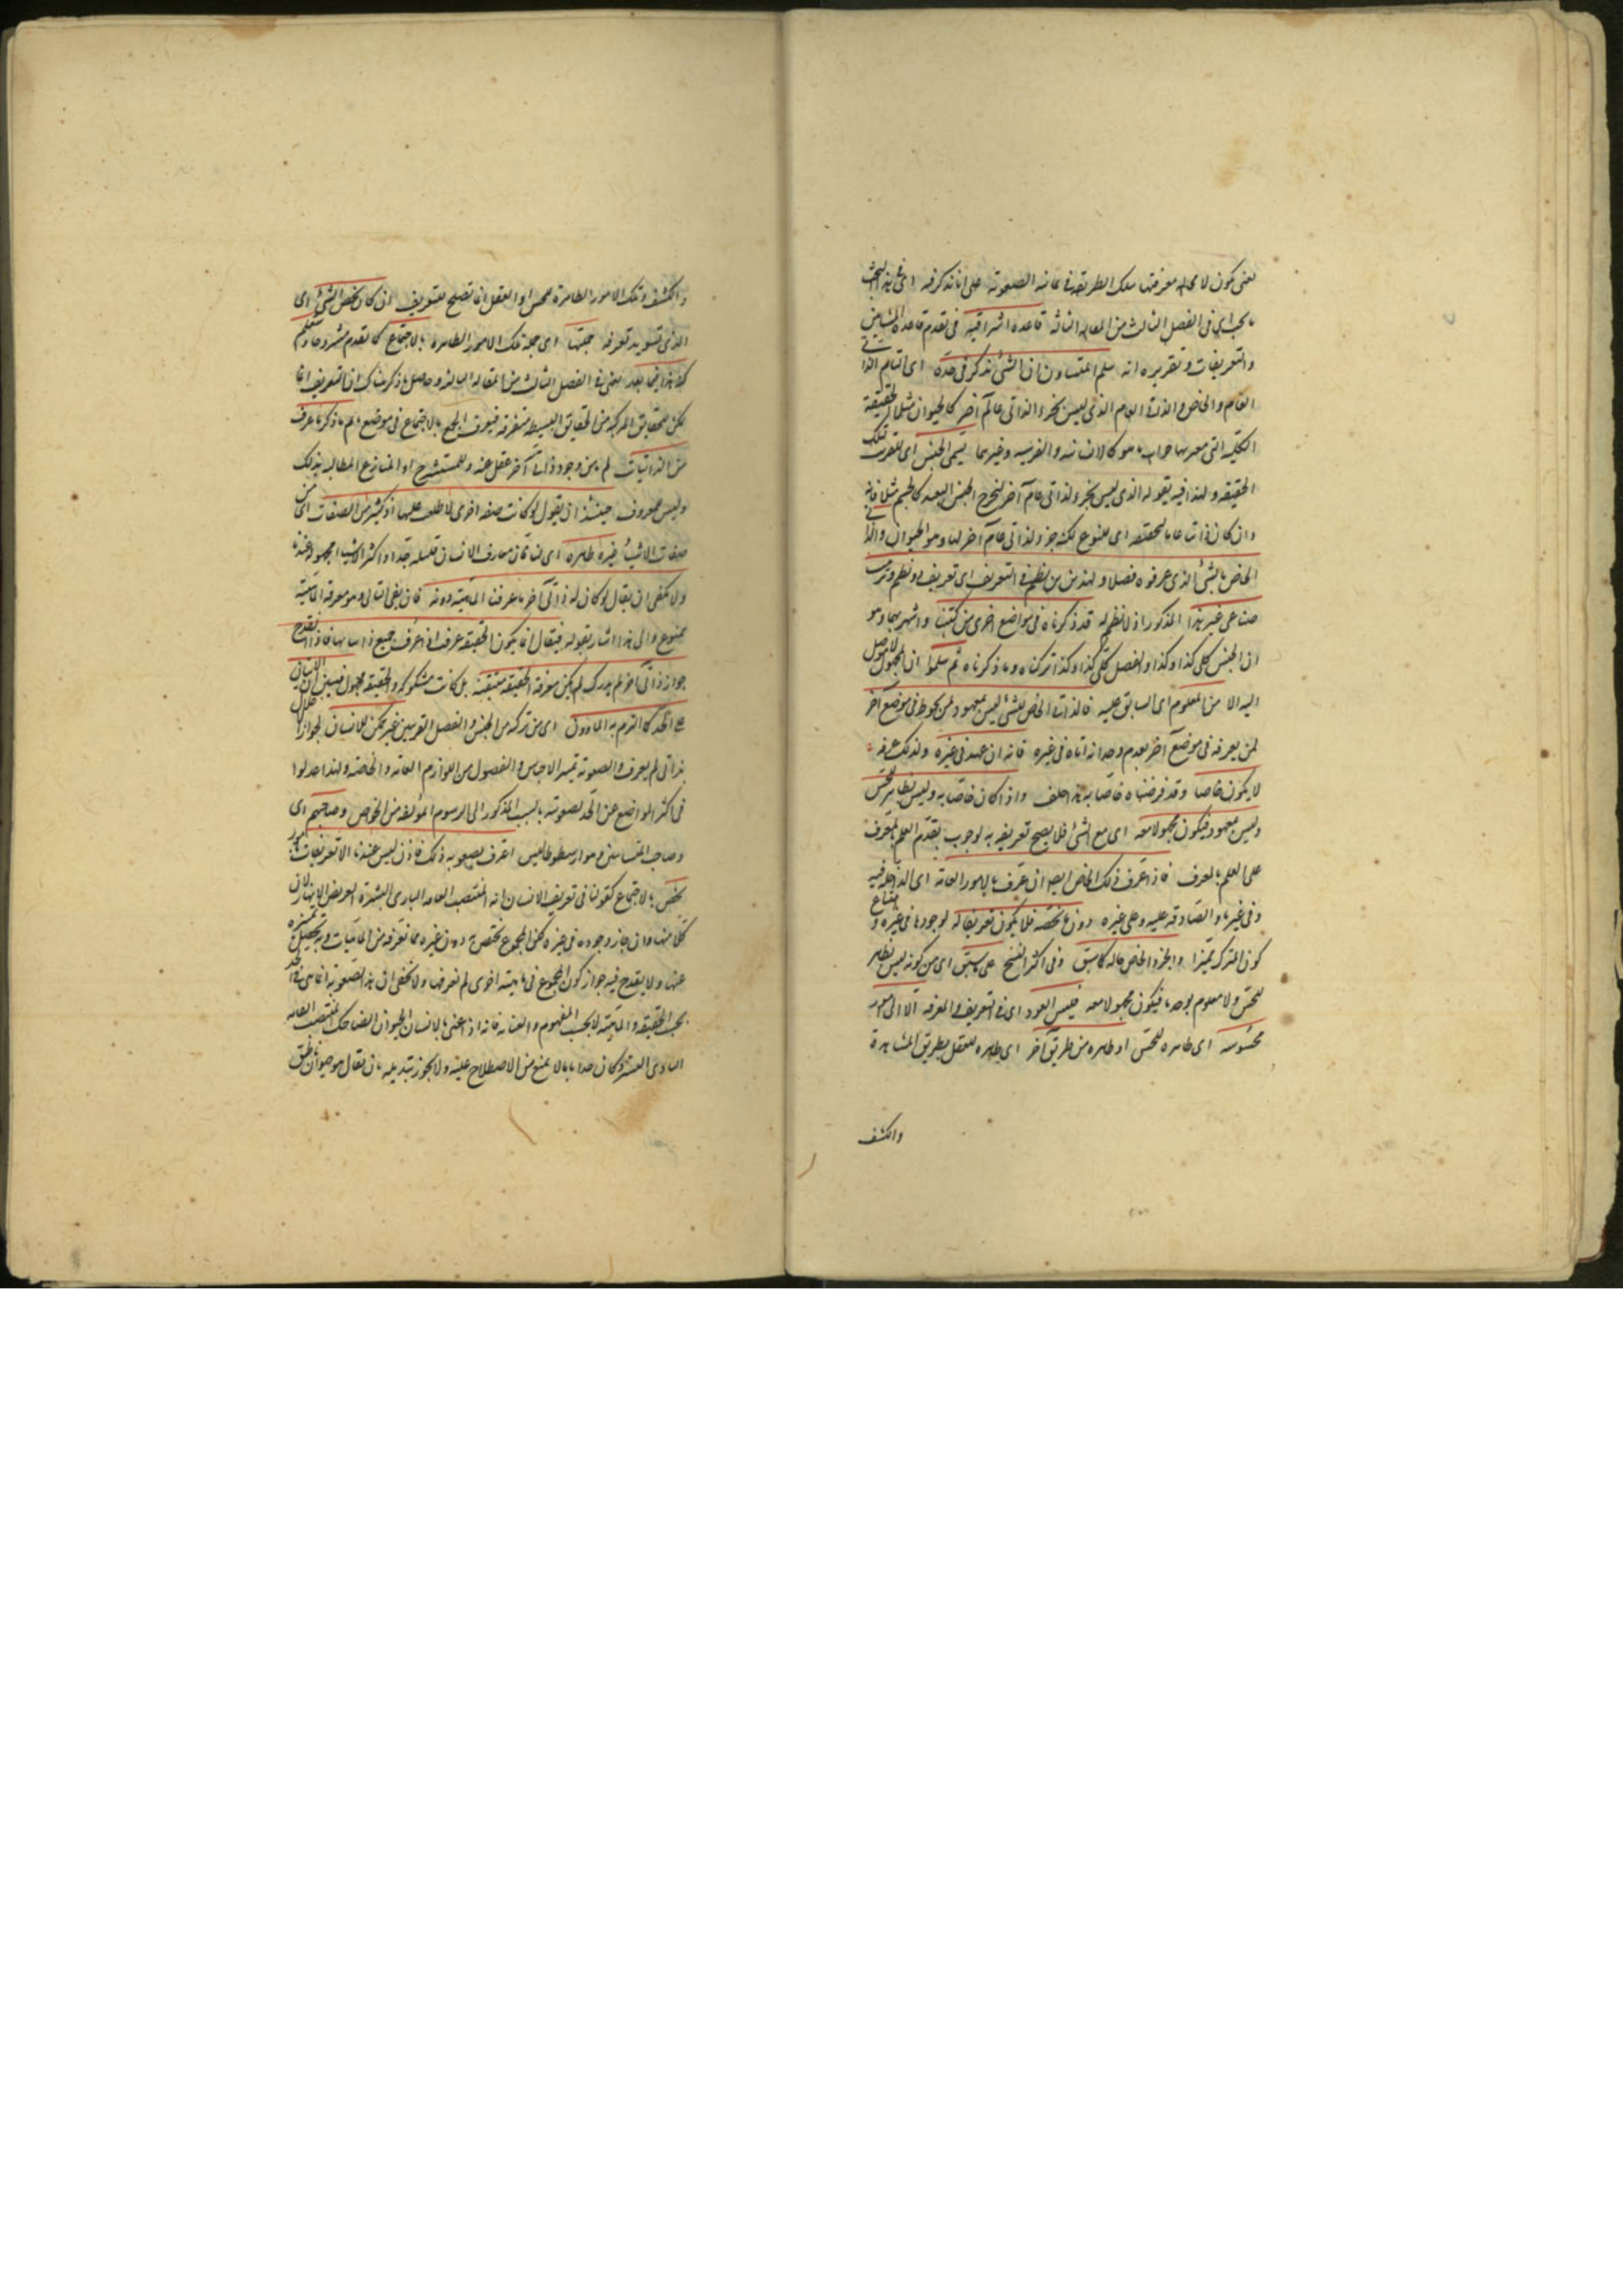 يعنى يكون لا محالة معرفتها بتلك الطريقة فى غاية الصعوبة على انا نذكر فيه اى فى هذا البحث
ما يجب اى فى الفصل الثالث من المقالة الثالثة قاعدة اشراقية فى تقدم قاعدة المشائين
والتعريفات وتقريره انه سلم المشاؤون ان الشئ يذكر فى حده اى التام الذاتى
العام والخاص والذاتى العام الذى ليس بجزء لذاتى عام آخر كالحيوان مثلا للحقيقة
الكلية التى جوابها ما هو كالانسانية والفرسية وغيرهما يسمى الجنس اى لتلك
الحقيقة ولهذا قيد بقوله الذى ليس بجزء لذاتى عام آخر ليخرج الجنس البعيد كالجسم مثلا فانه
وان كان ذاتيا عاما للحقيقة اى للنوع لكنه جزء لذاتى عام آخر لها وهو الحيوان والذاتى
الخاص بالشئ الذى عرفوه فصلا ولهذين نظم فى التعريف اى تعريف ونظم وترتيب
صناعى غير هذا المذكور اذ لا نظم له قد ذكرناه فى مواضع اخرى من كتبنا واشهر بها وهو
ان الجنس كلى كذا وكذا والفصل كلى كذا وكذا تركناه وما ذكرناه ثم سلموا ان المجهول لا يتوصل
اليه الا من المعلوم اى السابق عليه فالذاتى الخاص للشئ ليس بمعهود لمن يجهله فى موضع آخر
لمن يعرفه فى موضع آخر بعدم وجدانه اياه فى غيره فانه ان عهد فى غيره ولذلك عرفه
لا يكون خاصا وقد فرضناه خاصا به هذا خلف واذا كان خاصا به وليس بظاهر للحس
وليس بمعهود فيكون مجهولا معه اى مع الشئ فلا يصح تعريفه به لوجوب تقدم العلم بالمعرف
على العلم بالمعرف فاذا عرف ذلك الخاص ايضا ان عرف بالامور العامة اى الداخلة فيه
وفى غيره او الصادقة عليه وعلى غيره دون ما يخصه فلا يكون تعريفا له لوجودها فى غيره وامتناع
كون المشترك مميزا والجزء الخاص حاله كما سبق وفى اكثر النسخ على ما سبق اى من كونه ليس بظاهر
للحس ولا معلوم بوجه ما فيكون مجهولا معه فليس العود اى فى التعريف والمعرفة الا الى امور
محسوسة اى ظاهرة للحس او ظاهرة من طريق آخر اى ظاهرة للعقل بطريق المشاهدة
والكشف
والكشف وتلك الامور الظاهرة للحس او العقل انما تصلح للتعريف ان كان يخص الشئ اى
الذى تريد تعريفه جملتها اى جملة تلك الامور الظاهرة بالاجتماع كما تقدم مشروحا وستعلم
كنه هذا فيما بعد يعنى فى الفصل الثالث من المقالة الثالثة وحاصل ما ذكر هناك ان التعريف انما
يمكن للحقايق المركبة من الحقايق البسيطة متفرقة فيعرف الجمع بالاجتماع فى موضع ما ثم من ذكر ما عرف
من الذاتيات لم يأمن وجود ذاتى آخر غفل عنه وللمستشرح او المنازع المطالبة بذلك
وليس للمعرف حينئذ ان يقول لو كانت صفة اخرى لاطلعت عليها اذ كثير من الصفات اى من
صفات الاشياء غير ظاهرة اى لنا فان معارف الانسان قليلة جدا واكثر الاشياء مجهولة عنده
ولا يكفى ان يقال لو كان له ذاتى آخر ما عرفت الماهية دونه فان نفى التالى وهو معرفة الماهية
ممنوع والى هذا اشار بقوله فيقال انما يكون الحقيقة عرفت اذا عرف جميع ذاتياتها فاذا انقدح
جواز ذاتى آخر لم يدرك لم يكن معرفة الحقيقة متيقنة بل كانت مشكوكة والحقيقة مجهول فتبين ان الاتيان
على الحد كما التزم به المشاؤون اى من تركبه من الجنس والفصل القريبين غير ممكن للانسان لجواز الاخلال
بذاتى لم يعرف ولصعوبة تمييز الاجناس والفصول من اللوازم العامة والخاصة ولهذا عدلوا
فى اكثر المواضع عن الحد لصعوبته بالسبب المذكور الى الرسوم المؤلفة من الخواص وصاحبهم اى
وصاحب المشائين وهو ارسطوطاليس اعترف بصعوبة ذلك فاذن ليس عندنا الا تعريفات بامور
تخص بالاجتماع كقولنا فى تعريف الانسان انه المنتصب القامة البادى البشرة العريض الاظفار لان
كلا منها وان جاز وجوده فى غيره لكن المجموع يختص به دون غيره مما نعرفه من الماهيات وبه يحصل تميزه
عنها ولا يقدح فيه جواز كون المجموع فى ماهية اخرى لم نعرفها ولا يخفى ان هذه الصعوبة انما هى فى الحد
بحسب الحقيقة والماهية لا بحسب المفهوم والعناية فانه اذا عنى بالانسان الحيوان الضاحك المنتصب القامة
البادى البشرة كان حدا تاما لا يمنع من الاصطلاح عليه ولا يجوز تبديله بان يقال هو حيوان ناطق